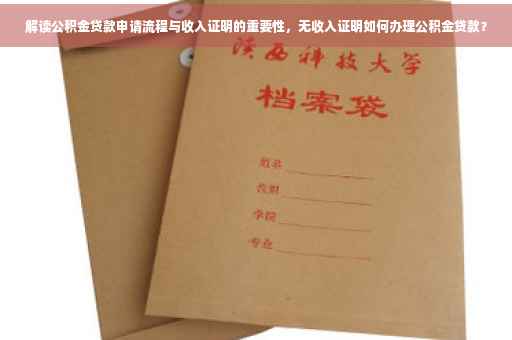 解读公积金贷款申请流程与收入证明的重要性，无收入证明如何办理公积金贷款？
陕西科技大学
档案袋
姓名
学院
专业